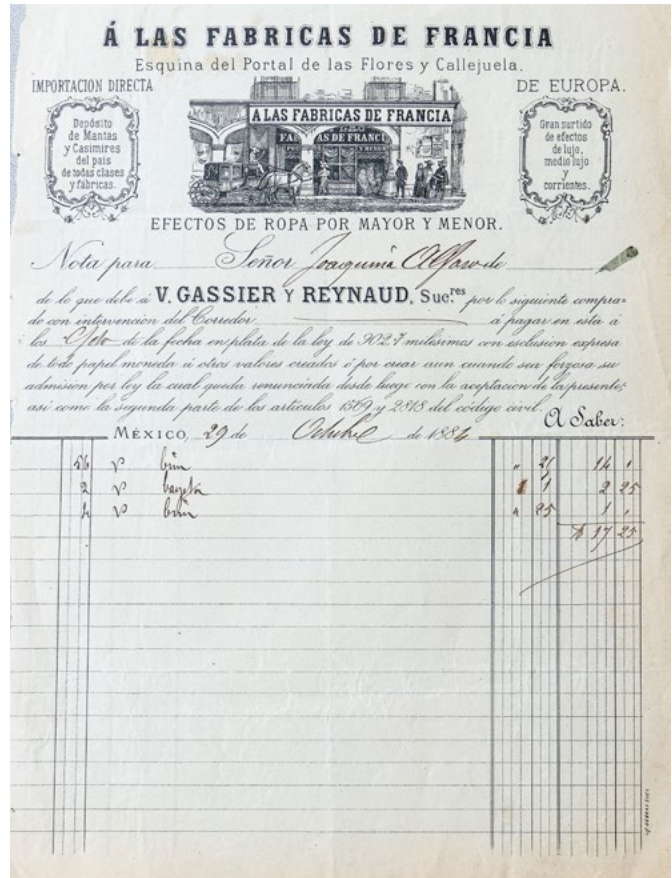 Á LAS FABRICAS DE FRANCIA
Esquina del Portal de las Flores y Callejuela.
IMPORTACION DIRECTA
DE EUROPA.
Depósito
de Mantas
y Casimires
del pais
de todas clases
y fábricas.
A LAS FABRICAS DE FRANCIA
Gran surtido
de efectos
de lujo,
medio lujo
y
corrientes.
EFECTOS DE ROPA POR MAYOR Y MENOR.
Nota para Señor Joaquina
de lo que debe á V. GASSIER Y REYNAUD, Suc.res por lo siguiente compra-
do con intervencion del Corredor á pagar en esta á
los de la fecha en plata de la ley de 902.7 milésimos con esclusion expresa
de todo papel moneda ú otros valores creados ó por crear aun cuando sea forzosa su
admision por ley la cual queda renunciada desde luego con la aceptacion de la presente,
asi como la segunda parte de los articulos 1569 y 2818 del código civil.
A Saber:
MÉXICO, 29 de Octubre de 1884
56 v brin " 25 14 "
2 v bayeta 1 2 25
4 v brin " 25 1 "
$ 17 25